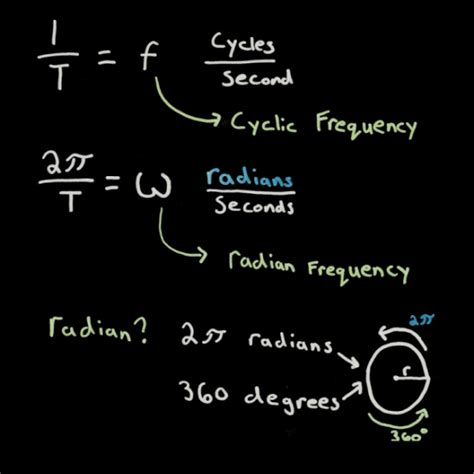 1/T = f Cycles/Second
Cyclic Frequency
2π/T = ω radians/Seconds
radian Frequency
radian? 2π radians
360 degrees
2π
r
360°